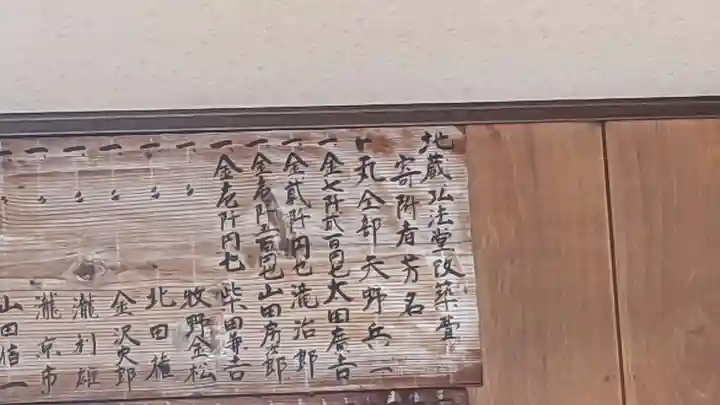 地蔵弘法堂改築費
寄附者芳名
一瓦全部 矢野兵一
一金七阡弐百円也 太田廣吉
一金貳阡円也 滝治郎
一金壱阡五百円也 山田房次郎
一金壱阡円也 柴田兼吉
一〃 牧野金松
一〃 北田権
一〃 金沢次郎
一〃 瀧利雄
一〃 瀧京市
一〃 山田信一